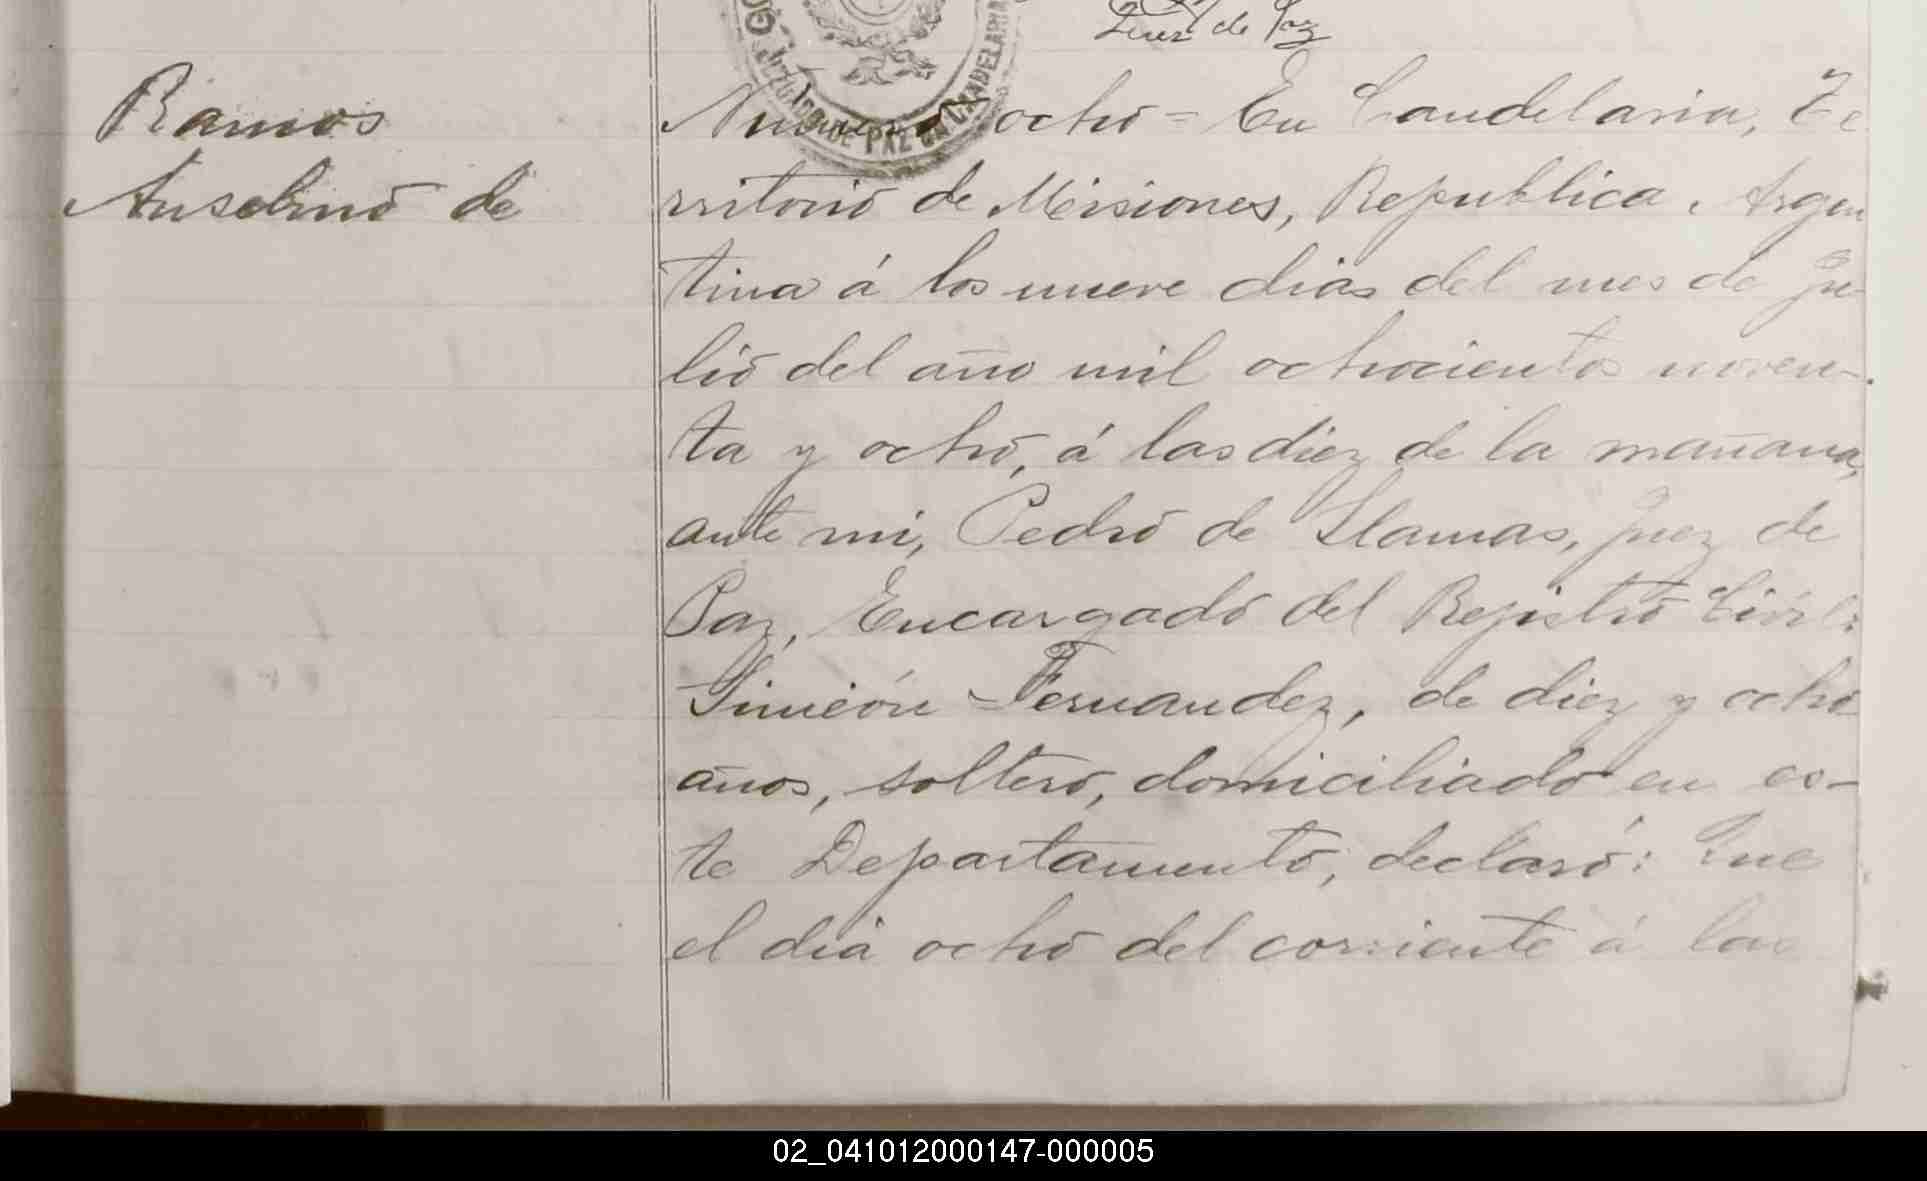 Juez de Paz
JUZGADO DE PAZ DE CANDELARIA
Ramos
Anselmo de
Numero ocho = En Candelaria, Te
rritorio de Misiones, Republica Argen
tina á los nueve dias del mes de Ju-
lio del año mil ochocientos noven-
ta y ocho, á las diez de la mañana,
ante mi, Pedro de Llamas, Juez de
Paz, Encargado del Rejistro Civil:
Simeón Fernandez, de diez y ocho
años, soltero, domiciliado en es-
te Departamento, declaró: Que
el dia ocho del corriente á las
02_041012000147-000005